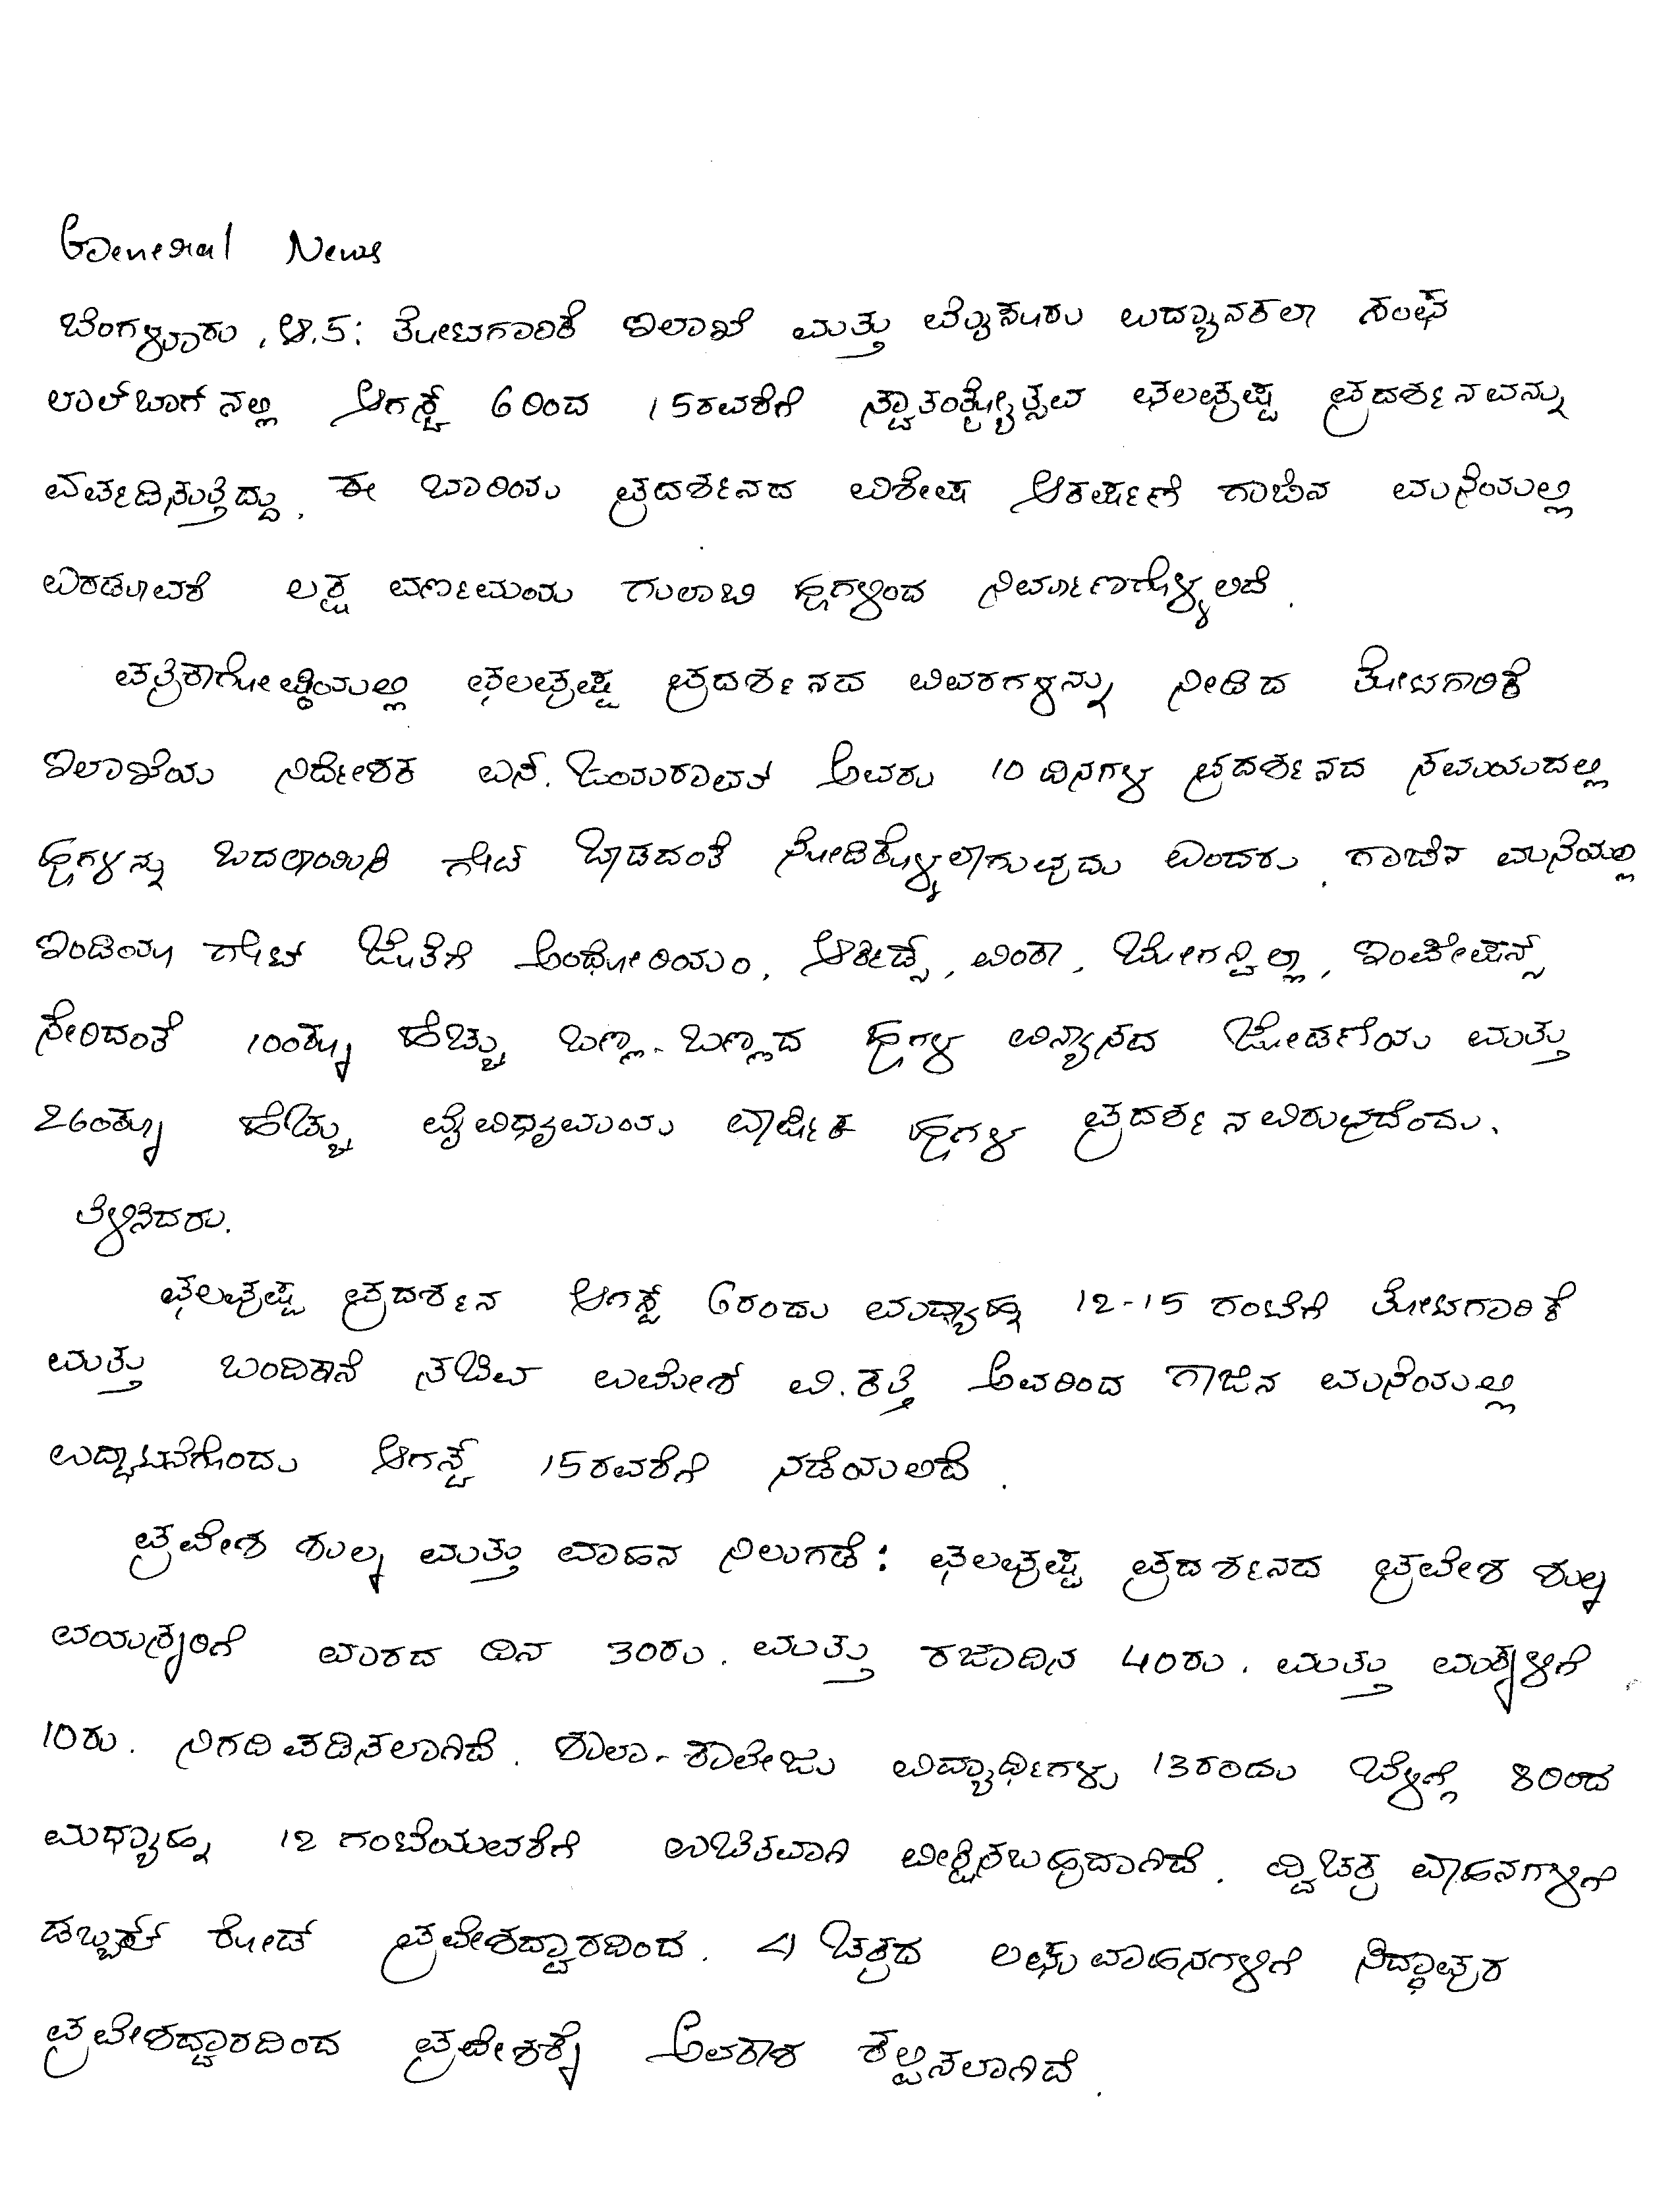 General News
ಬೆಂಗಳೂರು, ಆ.5: ತೋಟಗಾರಿಕೆ ಇಲಾಖೆ ಮತ್ತು ಮೈಸೂರು ಉದ್ಯಾನಕಲಾ ಸಂಘ
ಲಾಲ್‌ಬಾಗ್‌ನಲ್ಲಿ ಆಗಸ್ಟ್ 6ರಿಂದ 15ರವರೆಗೆ ಸ್ವಾತಂತ್ರ್ಯೋತ್ಸವ ಫಲಪುಷ್ಪ ಪ್ರದರ್ಶನವನ್ನು
ಏರ್ಪಡಿಸುತ್ತಿದ್ದು, ಈ ಬಾರಿಯ ಪ್ರದರ್ಶನದ ವಿಶೇಷ ಆಕರ್ಷಣೆ ಗಾಜಿನ ಮನೆಯಲ್ಲಿ
ಎರಡೂವರೆ ಲಕ್ಷ ವರ್ಣಮಯ ಗುಲಾಬಿ ಹೂಗಳಿಂದ ನಿರ್ಮಾಣಗೊಳ್ಳಲಿದೆ.
ಪತ್ರಿಕಾಗೋಷ್ಠಿಯಲ್ಲಿ ಫಲಪುಷ್ಪ ಪ್ರದರ್ಶನದ ವಿವರಗಳನ್ನು ನೀಡಿದ ತೋಟಗಾರಿಕೆ
ಇಲಾಖೆಯ ನಿರ್ದೇಶಕ ಎನ್. ಜಯರಾಮ್ ಅವರು 10 ದಿನಗಳ ಪ್ರದರ್ಶನದ ಸಮಯದಲ್ಲಿ
ಹೂಗಳನ್ನು ಬದಲಾಯಿಸಿ ಗೇಟ್ ಬಾಡದಂತೆ ನೋಡಿಕೊಳ್ಳಲಾಗುವುದು ಎಂದರು. ಗಾಜಿನ ಮನೆಯಲ್ಲಿ
ಇಂಡಿಯಾ ಗೇಟ್ ಜೊತೆಗೆ ಅಂಥೋರಿಯಂ, ಆರ್ಕಿಡ್ಸ್, ವಿಂಕಾ, ಬೋಗನ್ವಿಲ್ಲಾ, ಇಂಪೇಷನ್ಸ್
ಸೇರಿದಂತೆ 100ಕ್ಕೂ ಹೆಚ್ಚು ಬಣ್ಣಾ-ಬಣ್ಣಾದ ಹೂಗಳ ವಿನ್ಯಾಸದ ಜೋಡಣೆಯ ಮತ್ತು
260ಕ್ಕೂ ಹೆಚ್ಚು ವೈವಿಧ್ಯಮಯ ವಾರ್ಷಿಕ ಹೂಗಳ ಪ್ರದರ್ಶನವಿರುವುದೆಂದು.
ತಿಳಿಸಿದರು.
ಫಲಪುಷ್ಪ ಪ್ರದರ್ಶನ ಆಗಸ್ಟ್ 6ರಂದು ಮಧ್ಯಾಹ್ನ 12-15 ಗಂಟೆಗೆ ತೋಟಗಾರಿಕೆ
ಮತ್ತು ಬಂದಿಖಾನೆ ಸಚಿವ ಉಮೇಶ್ ವಿ.ಕತ್ತಿ ಅವರಿಂದ ಗಾಜಿನ ಮನೆಯಲ್ಲಿ
ಉದ್ಘಾಟನೆಗೊಂಡು ಆಗಸ್ಟ್ 15ರವರೆಗೆ ನಡೆಯಲಿದೆ.
ಪ್ರವೇಶ ಶುಲ್ಕ ಮತ್ತು ವಾಹನ ನಿಲುಗಡೆ: ಫಲಪುಷ್ಪ ಪ್ರದರ್ಶನದ ಪ್ರವೇಶ ಶುಲ್ಕ
ವಯಸ್ಕರಿಗೆ ವಾರದ ದಿನ 30ರು. ಮತ್ತು ರಜಾದಿನ 40ರು. ಮತ್ತು ಮಕ್ಕಳಿಗೆ
10ರು. ನಿಗದಿಪಡಿಸಲಾಗಿದೆ. ಶಾಲಾ-ಕಾಲೇಜು ವಿದ್ಯಾರ್ಥಿಗಳು 13ರಂದು ಬೆಳಿಗ್ಗೆ 8ರಿಂದ
ಮಧ್ಯಾಹ್ನ 12 ಗಂಟೆಯವರೆಗೆ ಉಚಿತವಾಗಿ ವೀಕ್ಷಿಸಬಹುದಾಗಿದೆ. ದ್ವಿಚಕ್ರ ವಾಹನಗಳಿಗೆ
ಡಬ್ಬಲ್ ರೋಡ್ ಪ್ರವೇಶದ್ವಾರದಿಂದ. 4 ಚಕ್ರದ ಲಘು ವಾಹನಗಳಿಗೆ ಸಿದ್ಧಾಪುರ
ಪ್ರವೇಶದ್ವಾರದಿಂದ ಪ್ರವೇಶಕ್ಕೆ ಅವಕಾಶ ಕಲ್ಪಿಸಲಾಗಿದೆ.